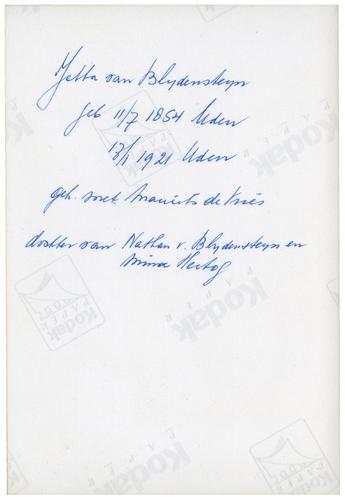 Jetta van Blydensteyn
geb 11/7 1854 Uden
13/1 1921 Uden
geh. met Maurits de Vries
dochter van Nathan v. Blydensteyn en
Mina Hertog
Kodak
PAPER